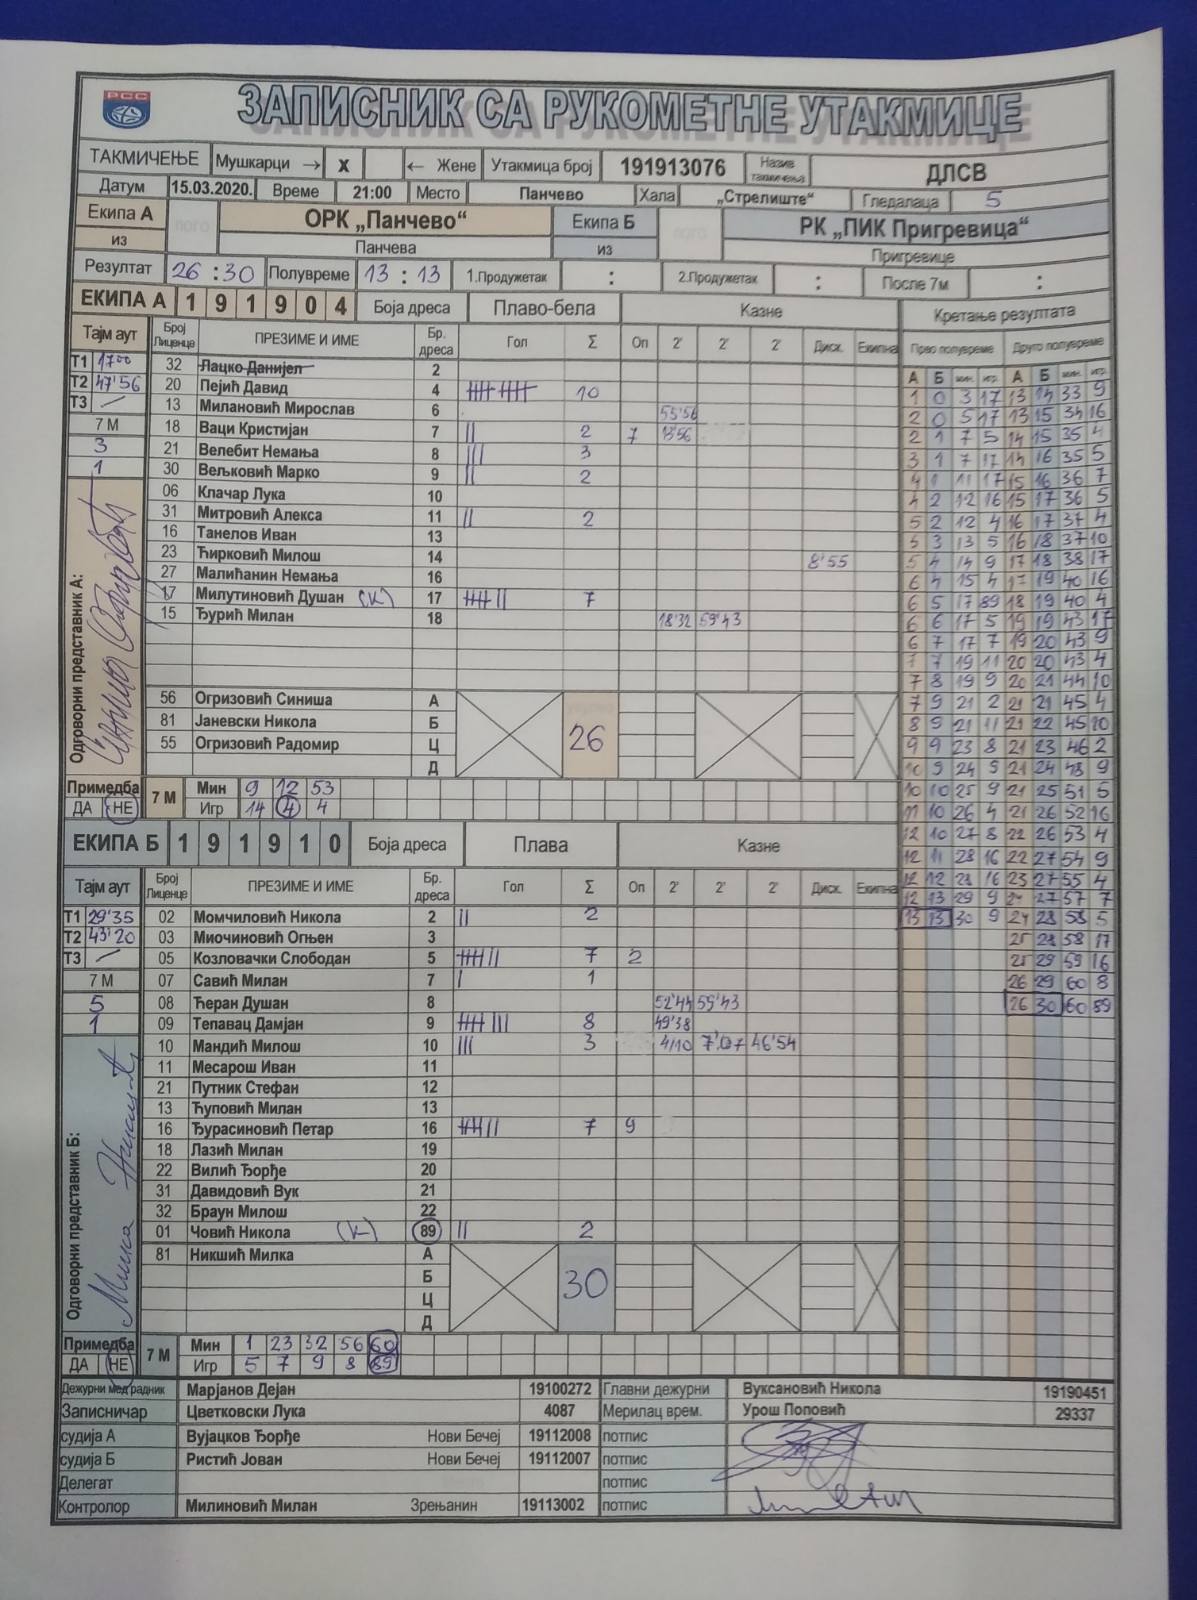 РСС
ЗАПИСНИК СА РУКОМЕТНЕ УТАКМИЦЕ
ТАКМИЧЕЊЕ Мушкарци → X ← Жене Утакмица број 191913076 Назив такмичења ДЛСВ
Датум 15.03.2020. Време 21:00 Место Панчево Хала „Стрелиште“ Гледалаца 5
Екипа А ОРК „Панчево“ Екипа Б РК „ПИК Пригревица“
из Панчева из Пригревице
Резултат 26 : 30 Полувреме 13 : 13 1.Продужетак : 2.Продужетак : После 7м :
ЕКИПА А 1 9 1 9 0 4 Боја дреса Плаво-бела Казне Кретање резултата
Тајм аут Број Лиценце ПРЕЗИМЕ И ИМЕ Бр. дреса Гол Σ Оп 2' 2' 2' Диск. Екипна Прво полувреме Друго полувреме
А Б мин. игр. А Б мин. игр.
Т1 17'00
Т2 47'56
Т3 /
7 М
3
1
32 Лацко Данијел 2
20 Пејић Давид 4 10
13 Милановић Мирослав 6 55'56
18 Ваци Кристијан 7 || 2 7 13'56
21 Велебит Немања 8 ||| 3
30 Вељковић Марко 9 || 2
06 Клачар Лука 10
31 Митровић Алекса 11 || 2
16 Танелов Иван 13
23 Ћирковић Милош 14 8'55
27 Малићанин Немања 16
17 Милутиновић Душан (К) 17 7
15 Ђурић Милан 18 18'32 59'43
56 Огризовић Синиша А
81 Јаневски Никола Б 26
55 Огризовић Радомир Ц
Д
Одговорни представник А:
Примедба ДА НЕ
7 М Мин 9 12 53
Игр 14 4 4
1 0 3 17 13 14 33 9
2 0 5 17 13 15 34 16
2 1 7 5 14 15 35 4
3 1 7 17 14 16 35 5
4 1 11 17 15 16 36 7
4 2 12 16 15 17 36 5
5 2 12 4 16 17 37 4
5 3 13 5 16 18 37 10
5 4 14 9 17 18 38 17
6 4 15 4 17 19 40 16
6 5 17 89 18 19 40 4
6 6 17 5 19 19 43 17
6 7 17 7 19 20 43 9
7 7 19 11 20 20 43 4
7 8 19 9 20 21 44 10
7 9 21 2 21 21 45 4
8 9 21 11 21 22 45 10
9 9 23 8 21 23 46 2
10 9 24 9 21 24 48 9
10 10 25 9 21 25 51 5
11 10 26 4 21 26 52 16
12 10 27 8 22 26 53 4
12 11 28 16 22 27 54 9
12 12 28 16 23 27 55 4
12 13 29 9 24 27 57 7
13 13 30 9 24 28 58 5
25 28 58 17
25 29 59 16
26 29 60 8
26 30 60 89
ЕКИПА Б 1 9 1 9 1 0 Боја дреса Плава Казне
Тајм аут Број Лиценце ПРЕЗИМЕ И ИМЕ Бр. дреса Гол Σ Оп 2' 2' 2' Диск. Екипна
Т1 29'35
Т2 43'20
Т3 /
7 М
5
1
02 Момчиловић Никола 2 || 2
03 Миочиновић Огњен 3
05 Козловачки Слободан 5 7 2
07 Савић Милан 7 | 1
08 Ћеран Душан 8 52'44 59'43
09 Тепавац Дамјан 9 8 49'38
10 Мандић Милош 10 ||| 3 4'10 7'07 46'54
11 Месарош Иван 11
21 Путник Стефан 12
13 Ћуповић Милан 13
16 Ђурасиновић Петар 16 7 9
18 Лазић Милан 19
22 Вилић Ђорђе 20
31 Давидовић Вук 21
32 Браун Милош 22
01 Човић Никола (К) 89 || 2
81 Никшић Милка А
Б 30
Ц
Д
Одговорни представник Б:
Примедба ДА НЕ
7 М Мин 1 23 32 56 60
Игр 5 7 9 8 89
Дежурни мед радник Марјанов Дејан 19100272 Главни дежурни Вуксановић Никола 19190451
Записничар Цветковски Лука 4087 Мерилац врем. Урош Поповић 29337
судија А Вујацков Ђорђе Нови Бечеј 19112008 потпис
судија Б Ристић Јован Нови Бечеј 19112007 потпис
Делегат потпис
Контролор Милиновић Милан Зрењанин 19113002 потпис